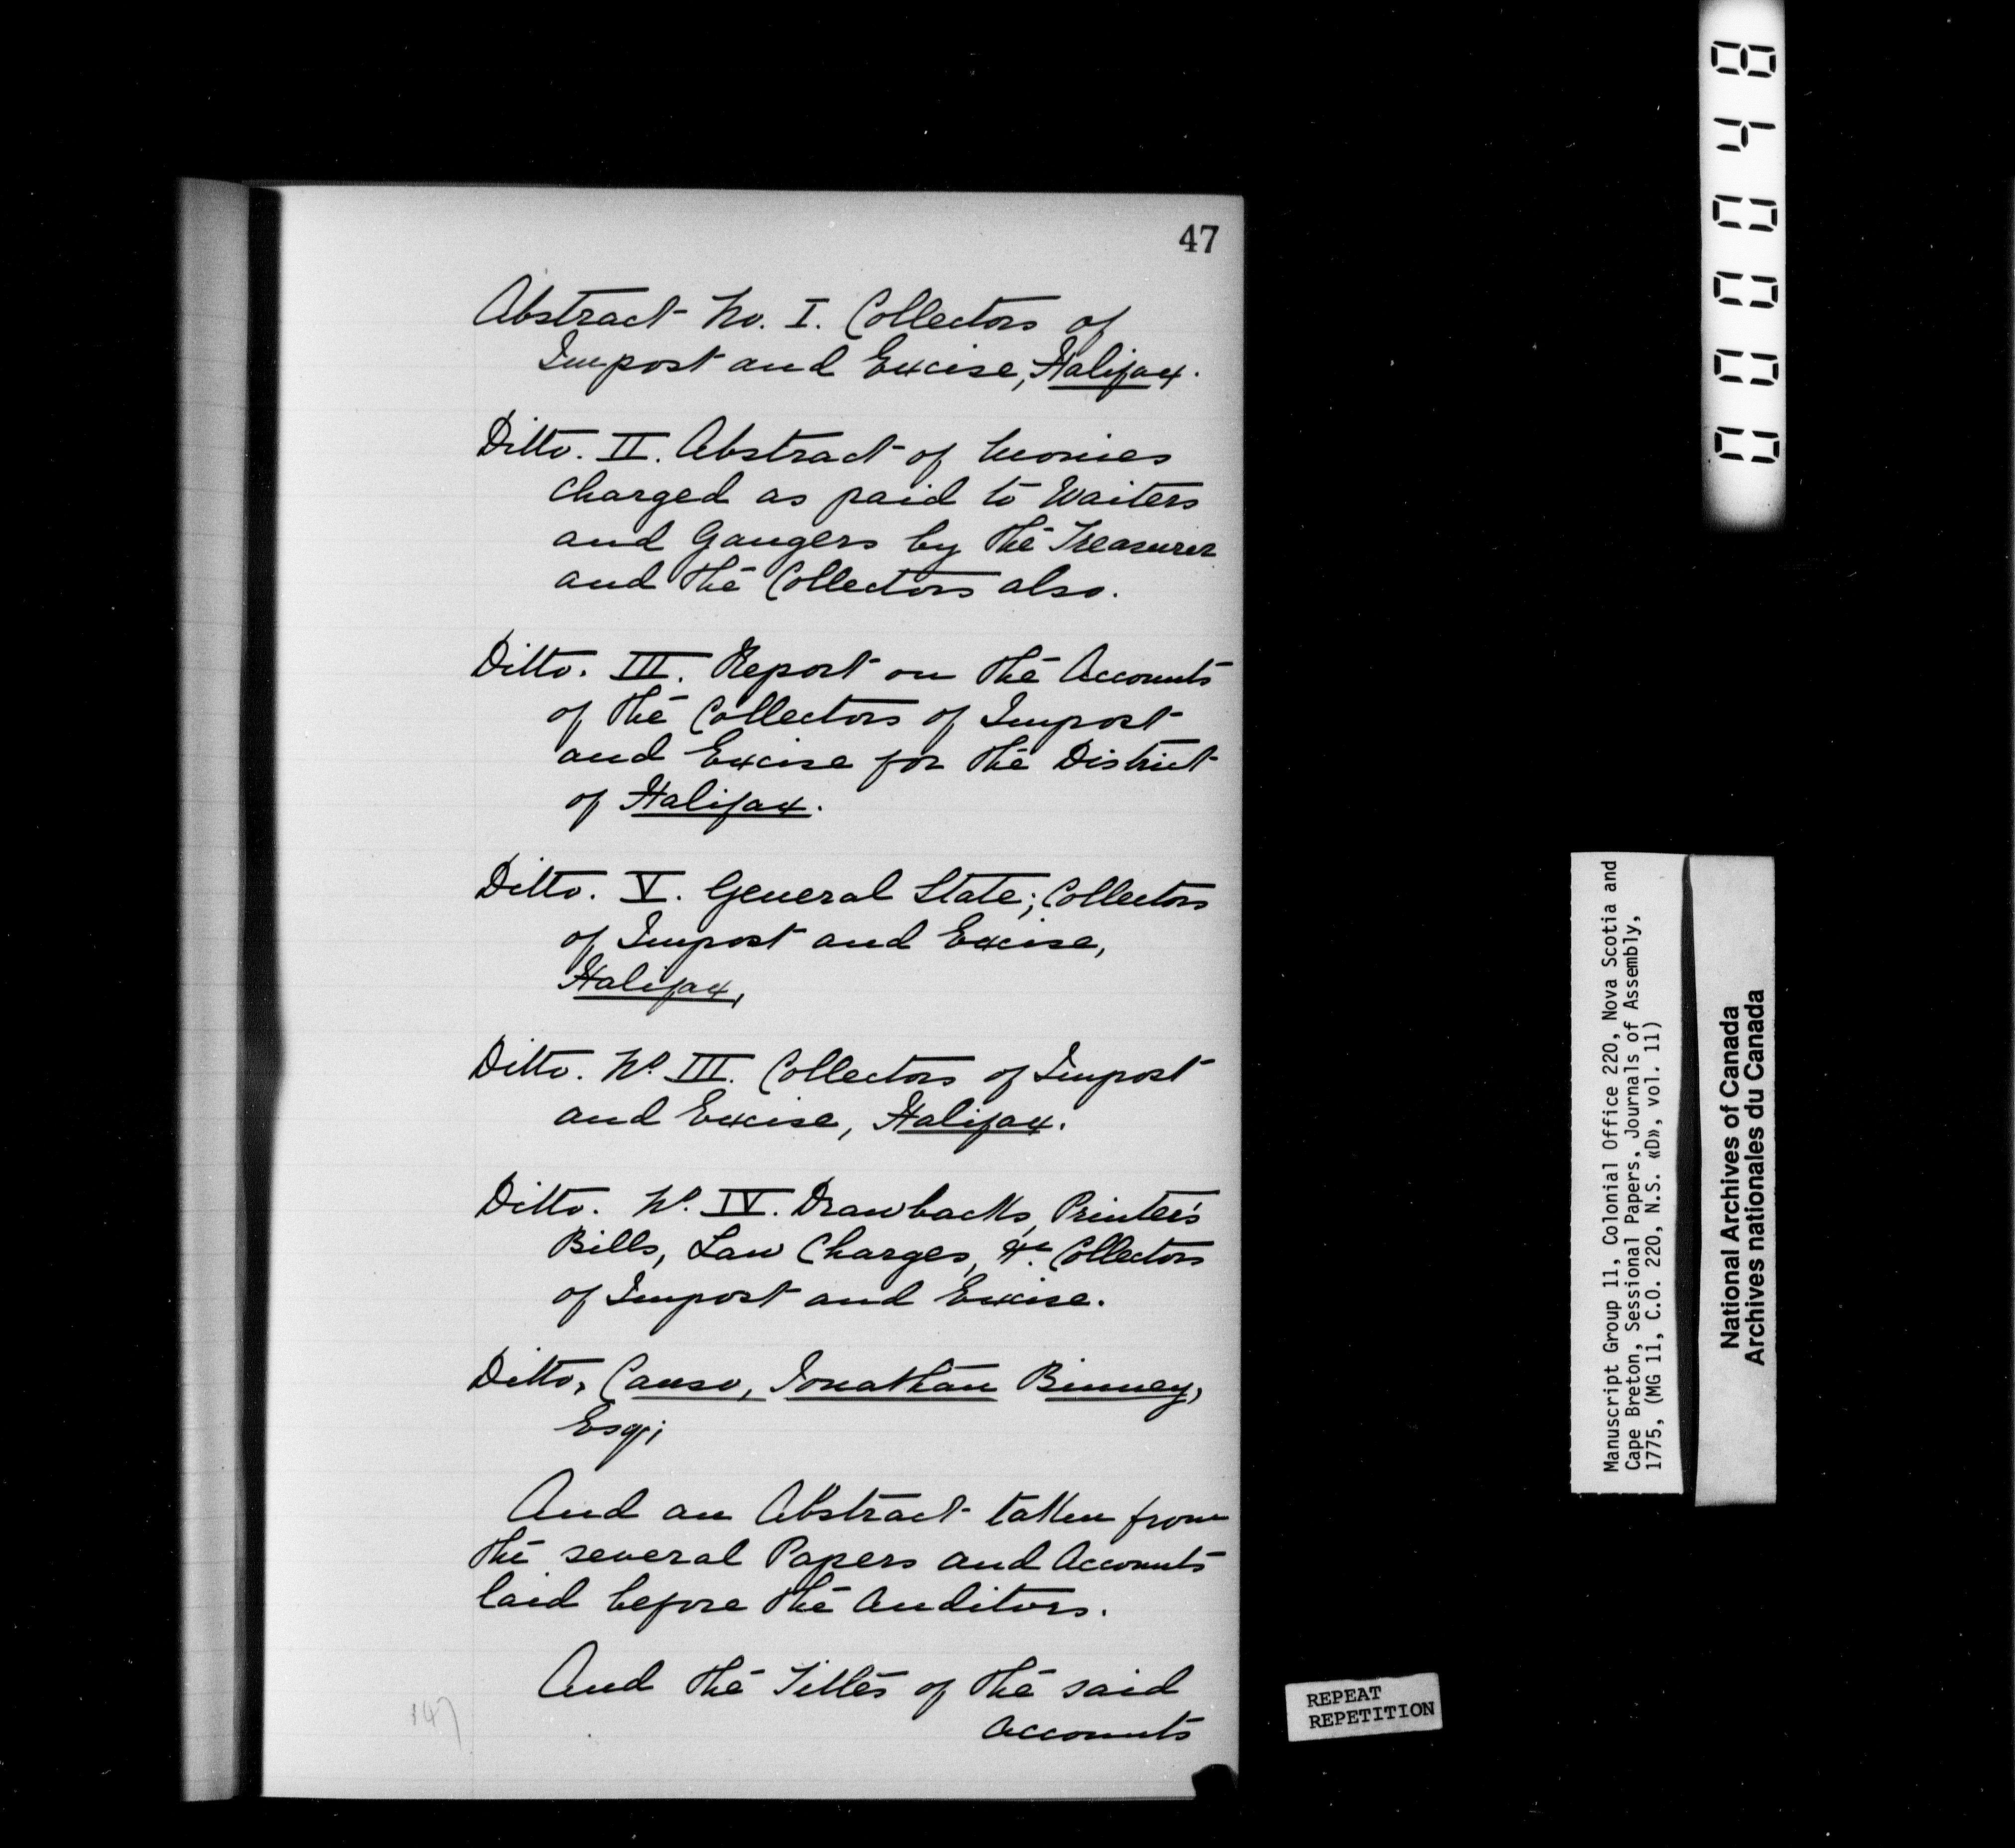 47
Abstract No. I. Collectors of
Impost and Excise, Halifax.
Ditto. II. Abstract of Monies
charged as paid to Waiters
and Gaugers by the Treasurer
and the Collectors also.
Ditto. III. Report on the Accounts
of the Collectors of Impost
and Excise for the District
of Halifax.
Ditto. V. General State; Collectors
of Impost and Excise,
Halifax,
Ditto. No. III. Collectors of Impost
and Excise, Halifax.
Ditto. No. IV. Drawbacks, Printer's
Bills, Law Charges, &c. Collectors
of Impost and Excise.
Ditto, Canso, Jonathan Binney,
Esq;
And an Abstract taken from
the several Papers and Accounts
laid before the Auditors.
And the Titles of the said
Accounts
147
000048
Manuscript Group 11, Colonial Office 220, Nova Scotia and
Cape Breton, Sessional Papers, Journals of Assembly,
1775, (MG 11, C.O. 220, N.S. «D», vol. 11)
National Archives of Canada
Archives nationales du Canada
REPEAT
REPETITION